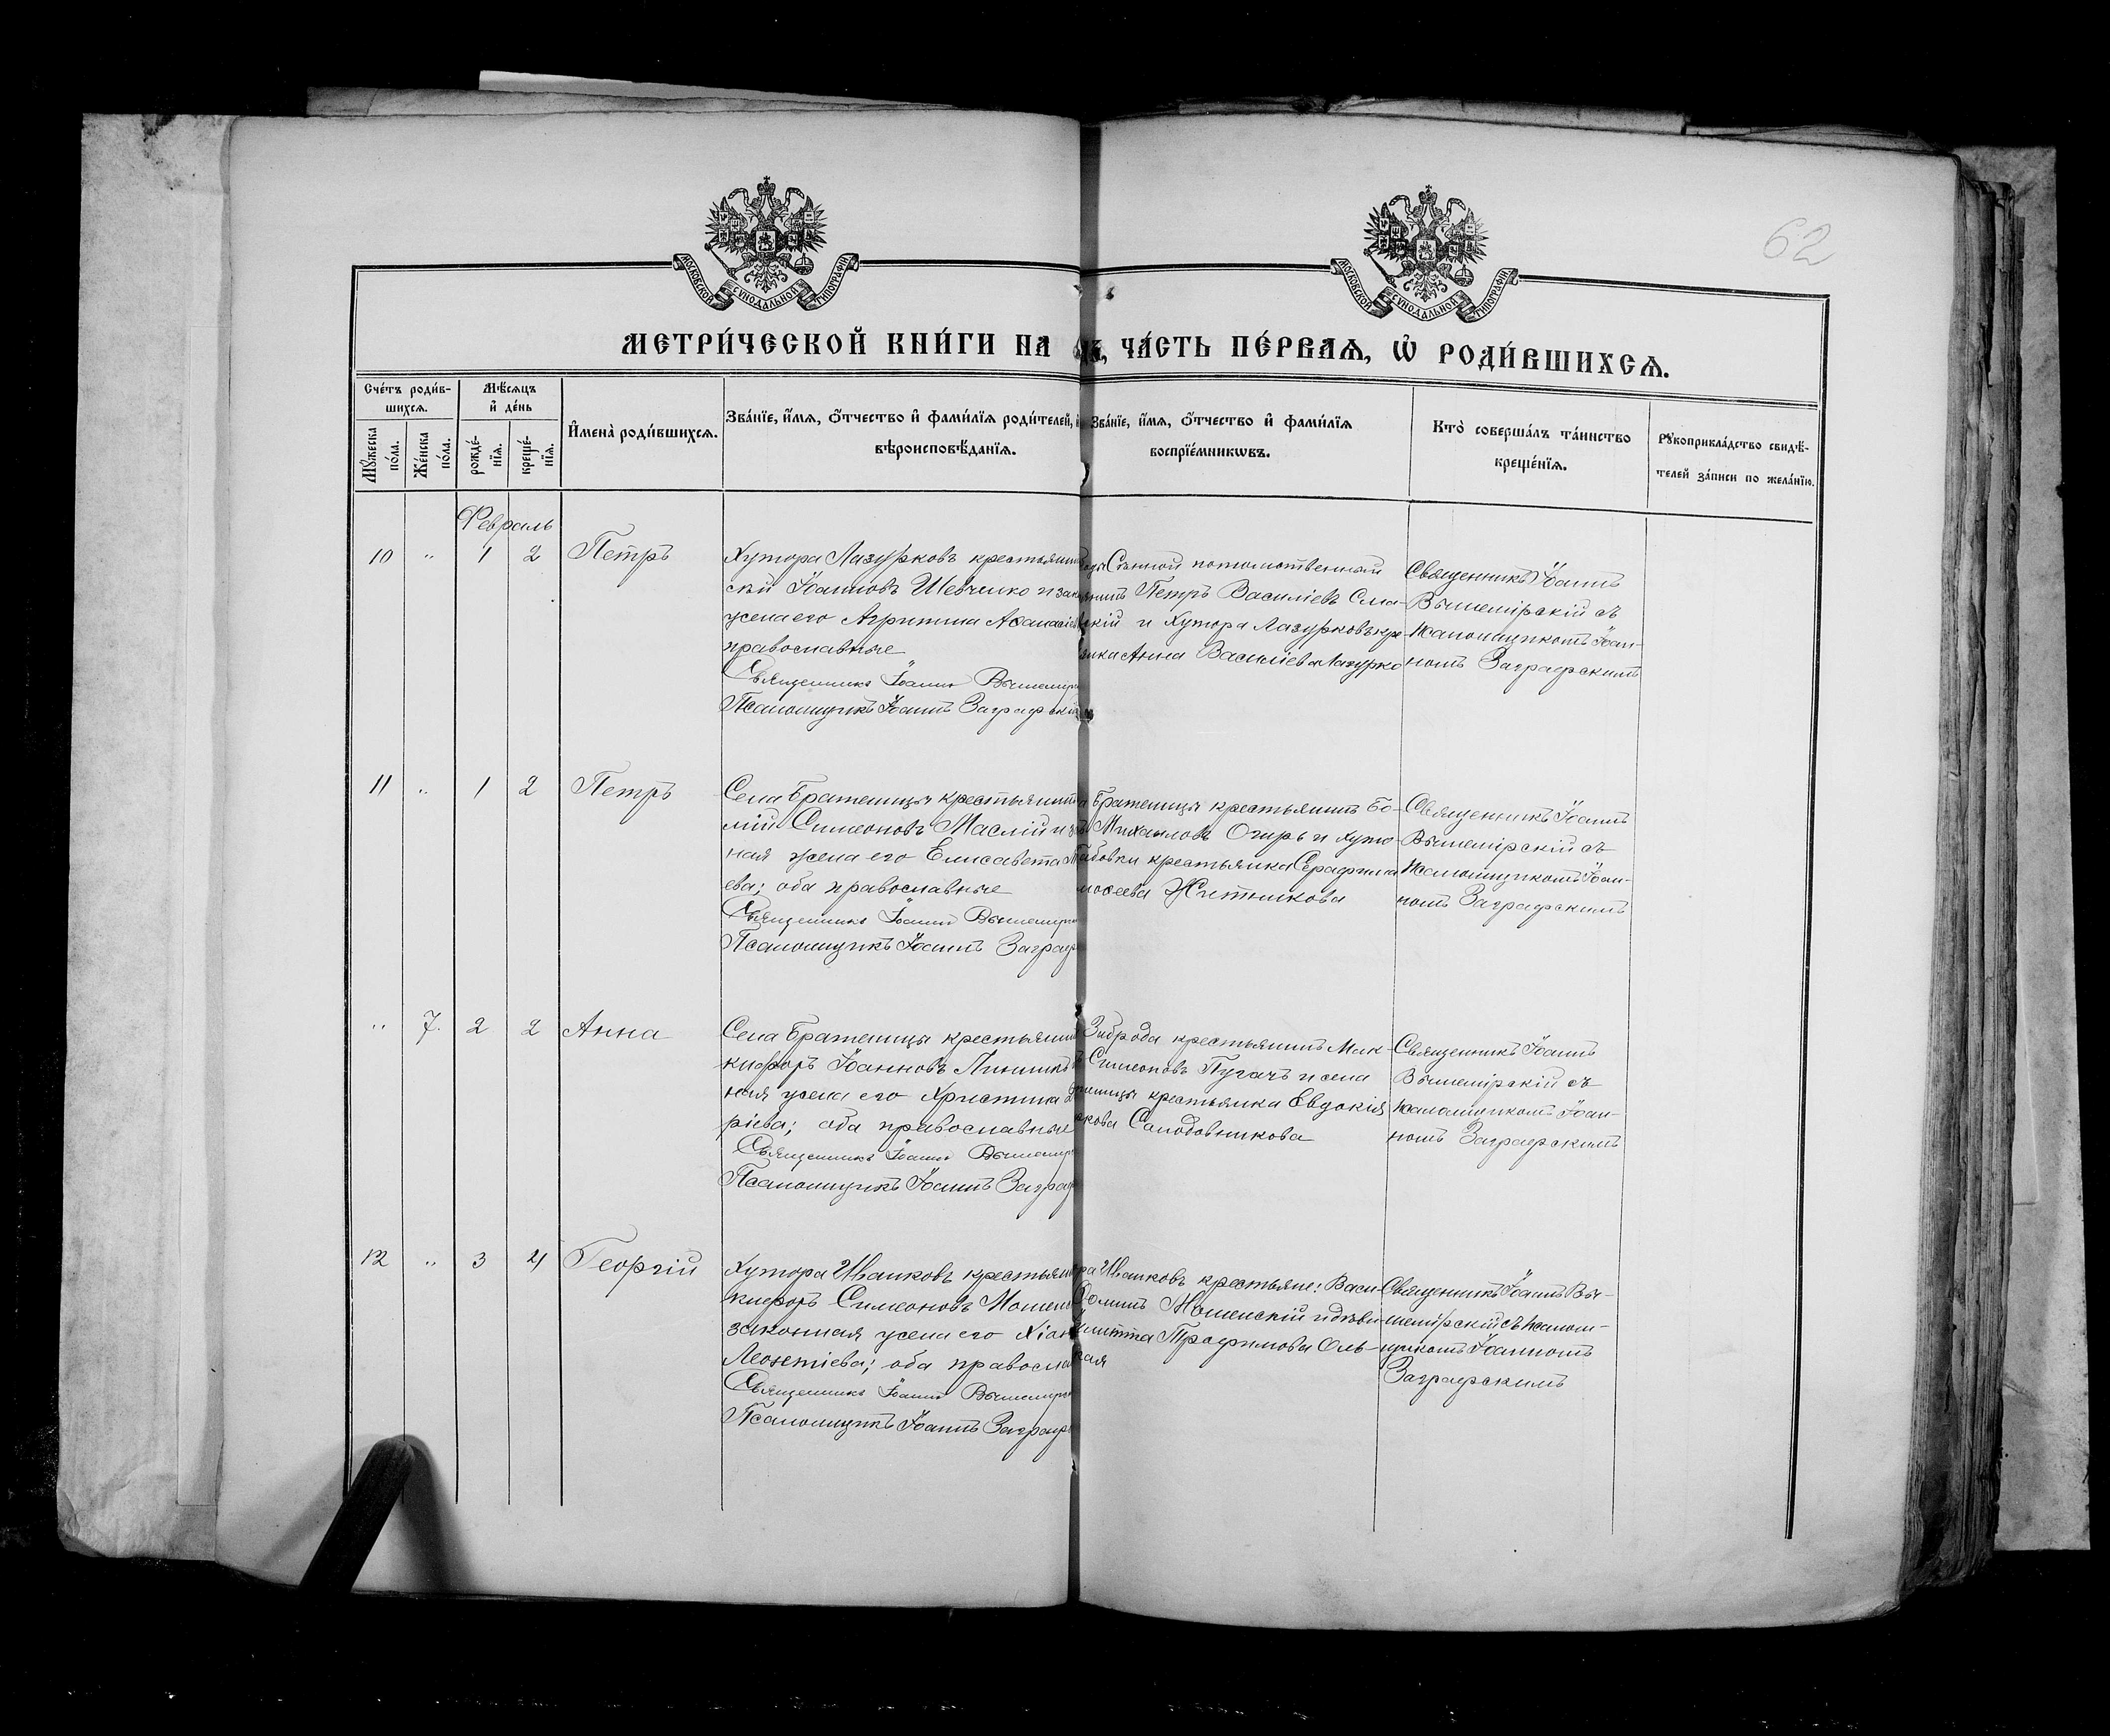 62
МОСКОВСКОЙ СѴНОДАЛЬНОЙ ТИПОГРАФІИ
МОСКОВСКОЙ СѴНОДАЛЬНОЙ ТИПОГРАФІИ
МЕТРИ́ЧЕСКОЙ КНИ́ГИ НА
ЧА́СТЬ ПЕ́РВАѦ, Ѽ РОДИ́ВШИХСѦ.
Сче́тъ роди́в-
шихсѧ.
Мꙋ́жеска
по́ла.
Же́нска
по́ла.
Мѣ́сяцъ
и҆ де́нь
рожде́-
нїѧ.
креще́-
нїѧ.
И҆мена̀ роди́вшихсѧ.
Зва́нїе, и҆́мѧ, ѻ҆́тчество и҆ фами́лїѧ роди́телей,
вѣроисповѣ́данїѧ.
Зва́нїе, и҆́мѧ, ѻ҆́тчество и҆ фами́лїѧ
воспрїе́мникѡвъ.
Кто̀ соверша́лъ та́инство
креще́нїѧ.
Рꙋкоприкла́дство свидѣ́-
телей за́писи по жела́нїю.
Февраль
10 " 1 2 Петръ
Хутора Лазурковъ крестьянин
скій Іоанновъ Шевченко и зак
жена его Агрипина Аѳанасіев
православные
Священникъ Іоаннъ Вышемір
Псаломщикъ Іоаннъ Заграфскі
Сѣнной потомственный
Петръ Василіевъ Сма-
скій и Хутора Лазурковъ кре
янка Анна Василіева Лазурко
Священникъ Іоаннъ
Вышемірскій съ
псаломщикомъ Іоан-
номъ Заграфскимъ
11 " 1 2 Петръ
Села Братешцы крестьянин
мій Симеоновъ Маслій и за
ная жена его Елисавета
ева; оба православные
Священникъ Іоаннъ Вышемір
Псаломщикъ Іоаннъ Заграф
Братешцы крестьянинъ Бо-
Михаиловъ Огирь и хуто-
бовки крестьянка Серафима
мосеева Житникова
Священникъ Іоаннъ
Вышемірскій съ
псаломщикомъ Іоан-
номъ Заграфскимъ
" 7. 2 2 Анна
Села Братешцы крестьянин
кифоръ Іоанновъ Линникъ
ная жена его Христина
ріева; оба православные
Священникъ Іоаннъ Вышемір
Псаломщикъ Іоаннъ Заграф
Заброда крестьянинъ Мак-
Симеоновъ Пугачъ и села
тешцы крестьянка Евдокія
кова Солодовникова
Священникъ Іоаннъ
Вышемірскій съ
псаломщикомъ Іоан-
номъ Заграфскимъ
12 " 3 4 Георгій
Хутора Иванковъ крестьян
кифоръ Симеоновъ Мошен
законная жена его Кіан
Леонтіева; оба правосла
Священникъ Іоаннъ Вышемір
Псаломщикъ Іоаннъ Заграф
ра Иванковъ крестьяне: Васи
Ѳоминъ Мошенскій и дѣви
Трофимова Оль-
кая
Священникъ Іоаннъ Вы-
шемірскій съ псалом-
щикомъ Іоанномъ
Заграфскимъ